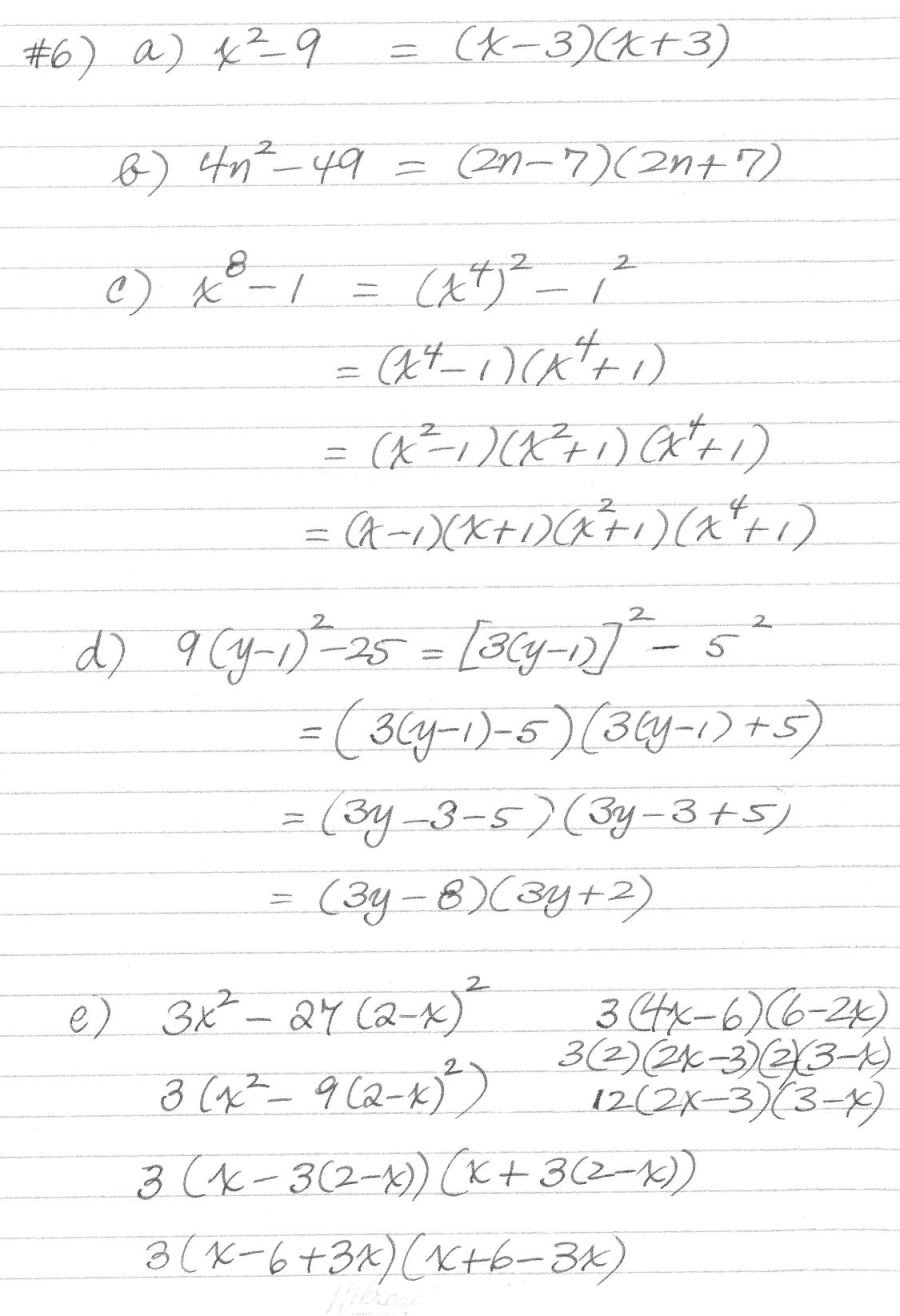 #6) a) x²-9 = (x-3)(x+3)
b) 4n²-49 = (2n-7)(2n+7)
c) x⁸-1 = (x⁴)² - 1²
= (x⁴-1)(x⁴+1)
= (x²-1)(x²+1)(x⁴+1)
= (x-1)(x+1)(x²+1)(x⁴+1)
d) 9(y-1)²-25 = [3(y-1)]² - 5²
= (3(y-1)-5)(3(y-1)+5)
= (3y-3-5)(3y-3+5)
= (3y-8)(3y+2)
e) 3x² - 27(2-x)²
3(x² - 9(2-x)²)
3(x-3(2-x))(x+3(2-x))
3(x-6+3x)(x+6-3x)
3(4x-6)(6-2x)
3(2)(2x-3)(2)(3-x)
12(2x-3)(3-x)